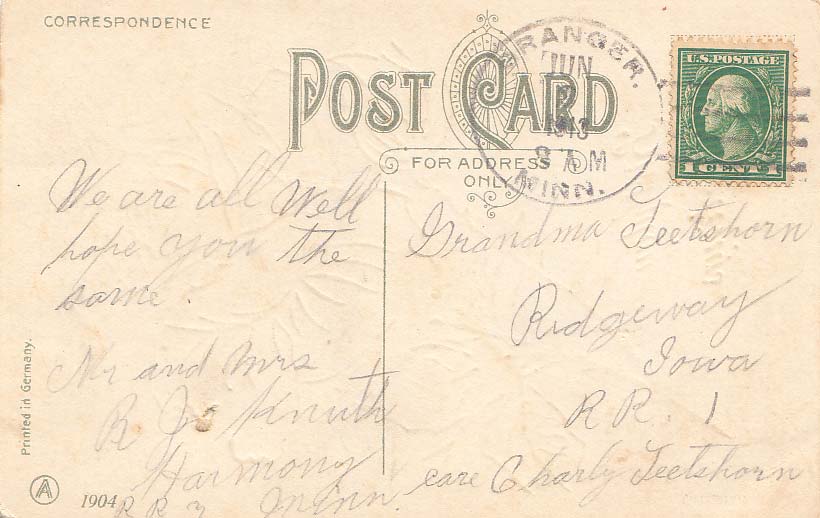 CORRESPONDENCE
POST CARD
FOR ADDRESS
ONLY
GRANGER.
JUN
1913
8 AM
MINN.
U.S. POSTAGE
1 CENT 1
We are all well
hope you the
same.
Mr and Mrs
R J Knuth
Harmony
R R 2 Minn.
Grandma Teetshorn
Ridgeway
Iowa
R R. 1
care Charly Teetshorn
Printed in Germany.
A
1904